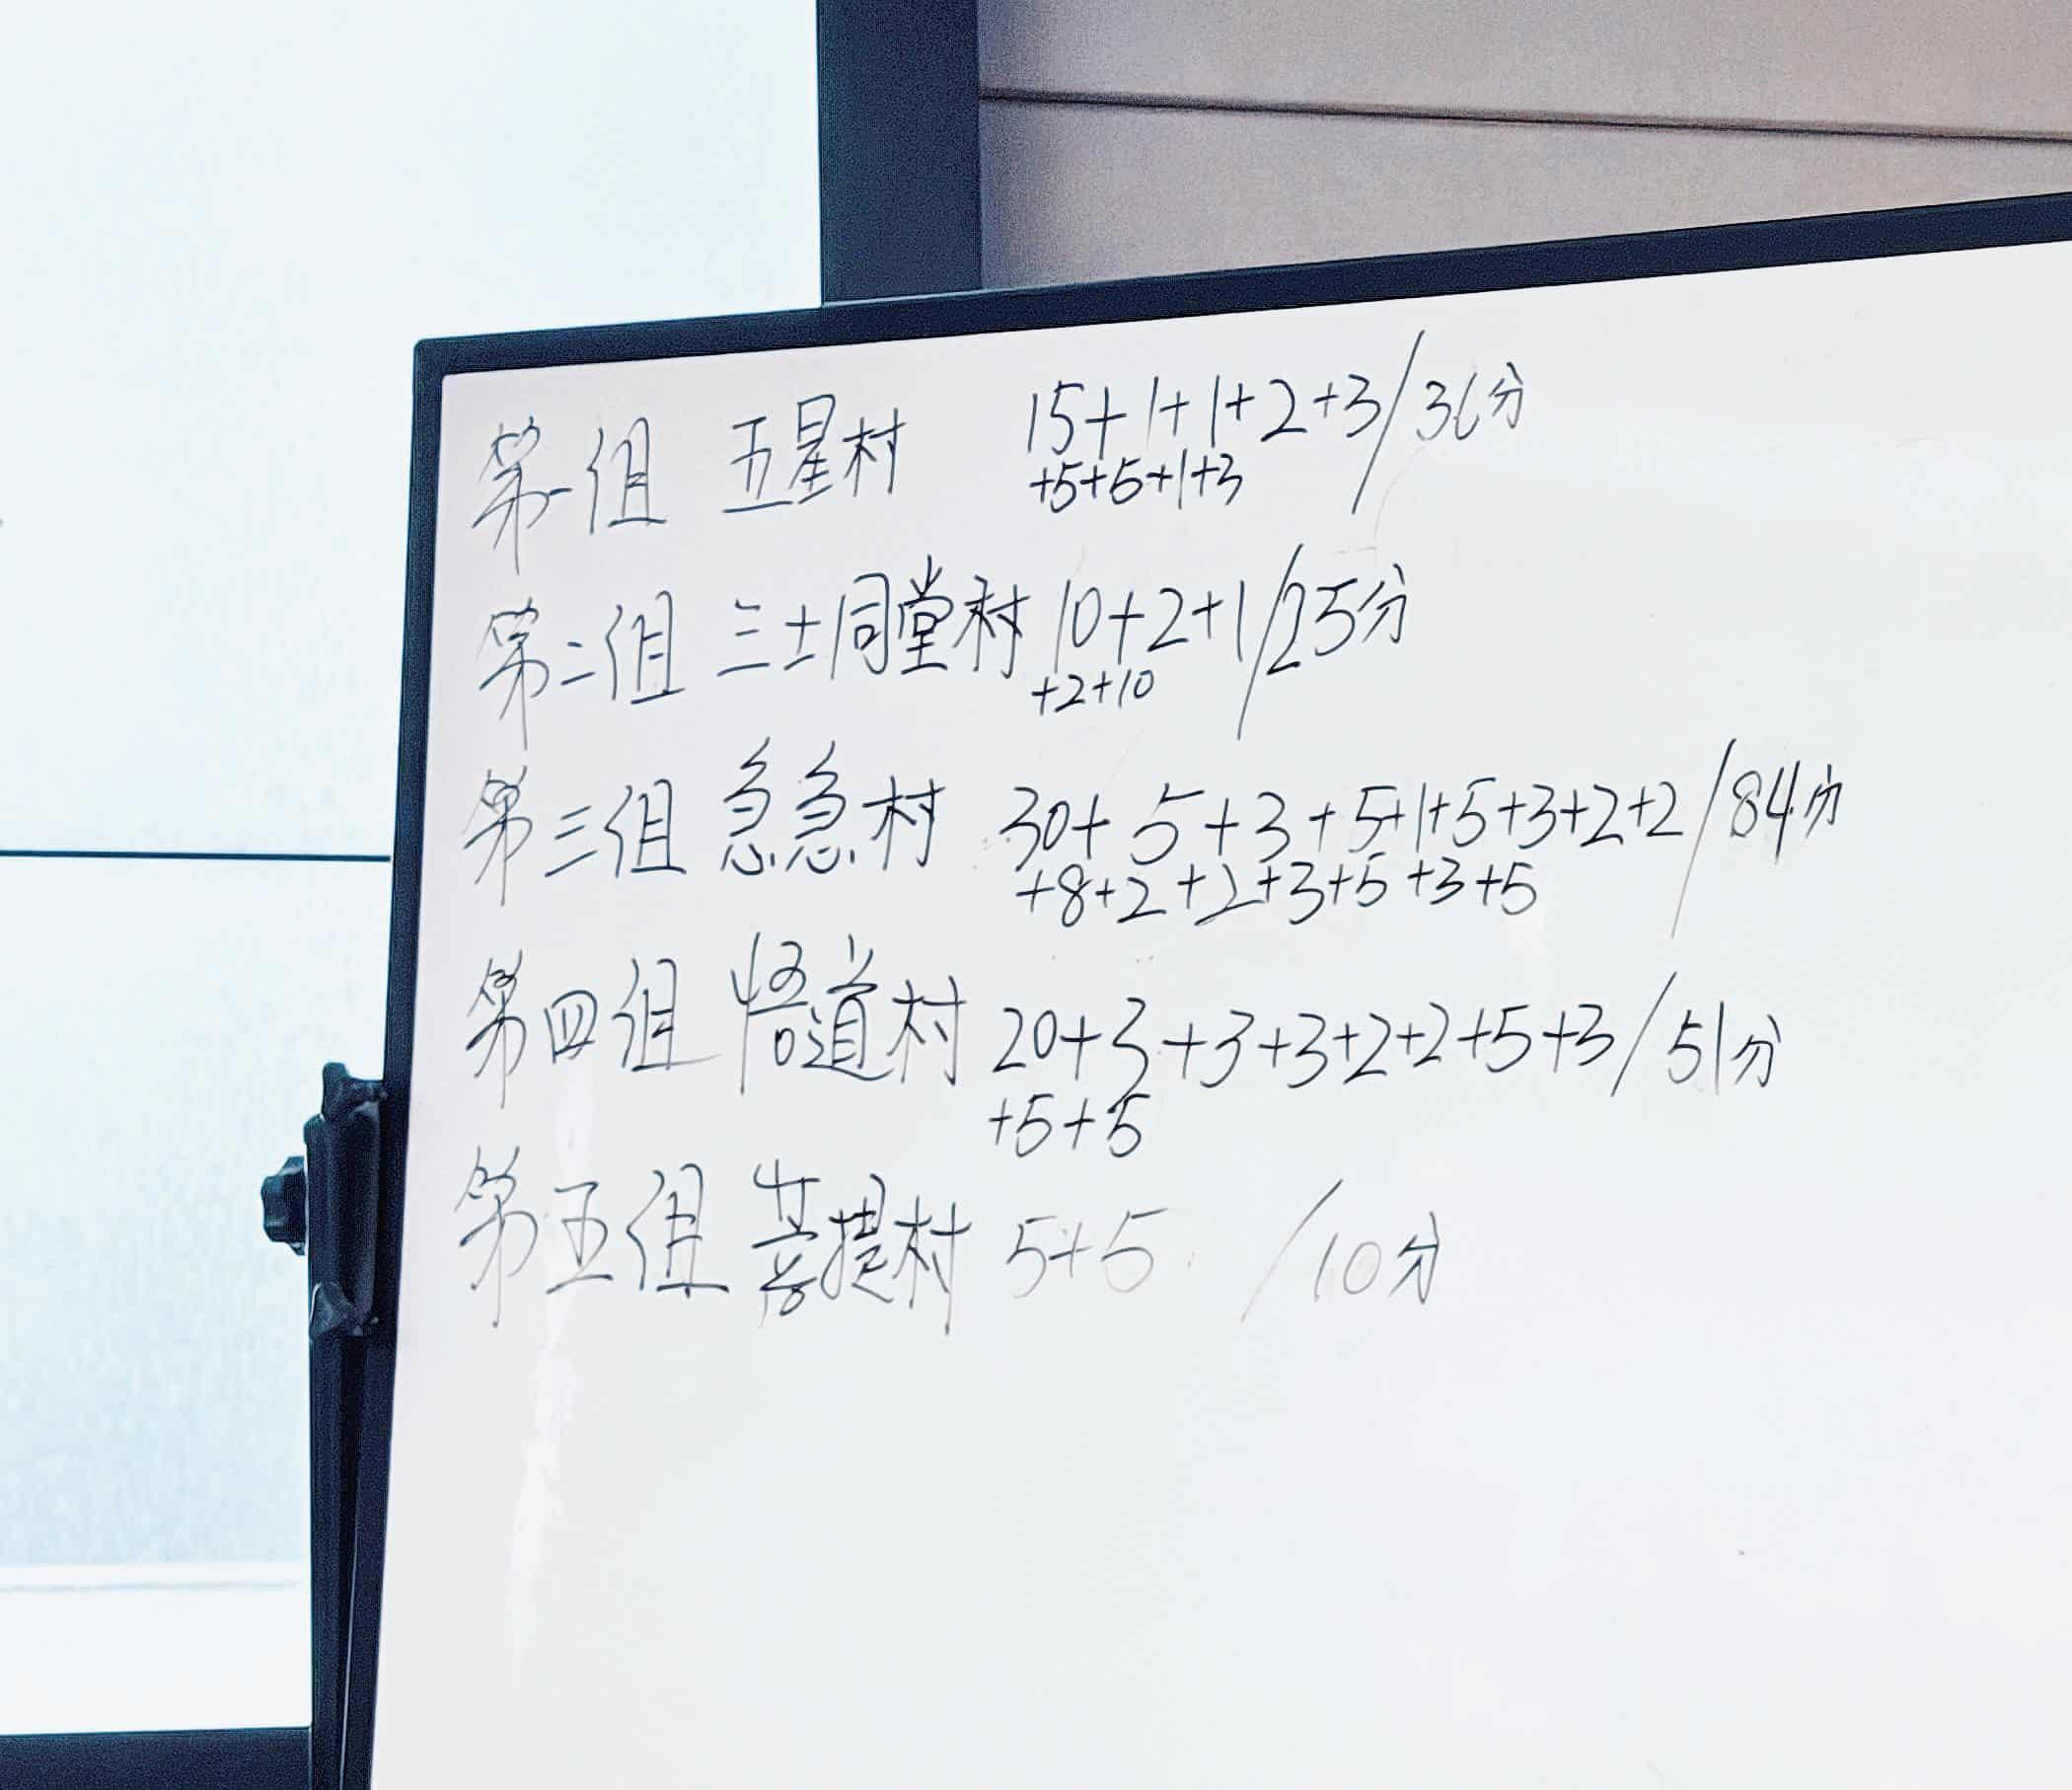 第一组 五星村 15+1+1+2+3/36分
+5+5+1+3
第二组 三士同堂村 10+2+1/25分
+2+10
第三组 急急村 30+5+3+5+1+5+3+2+2/84分
+8+2+2+3+5+3+5
第四组 悟道村 20+3+3+3+2+2+5+3/51分
+5+5
第五组 菩提村 5+5 /10分